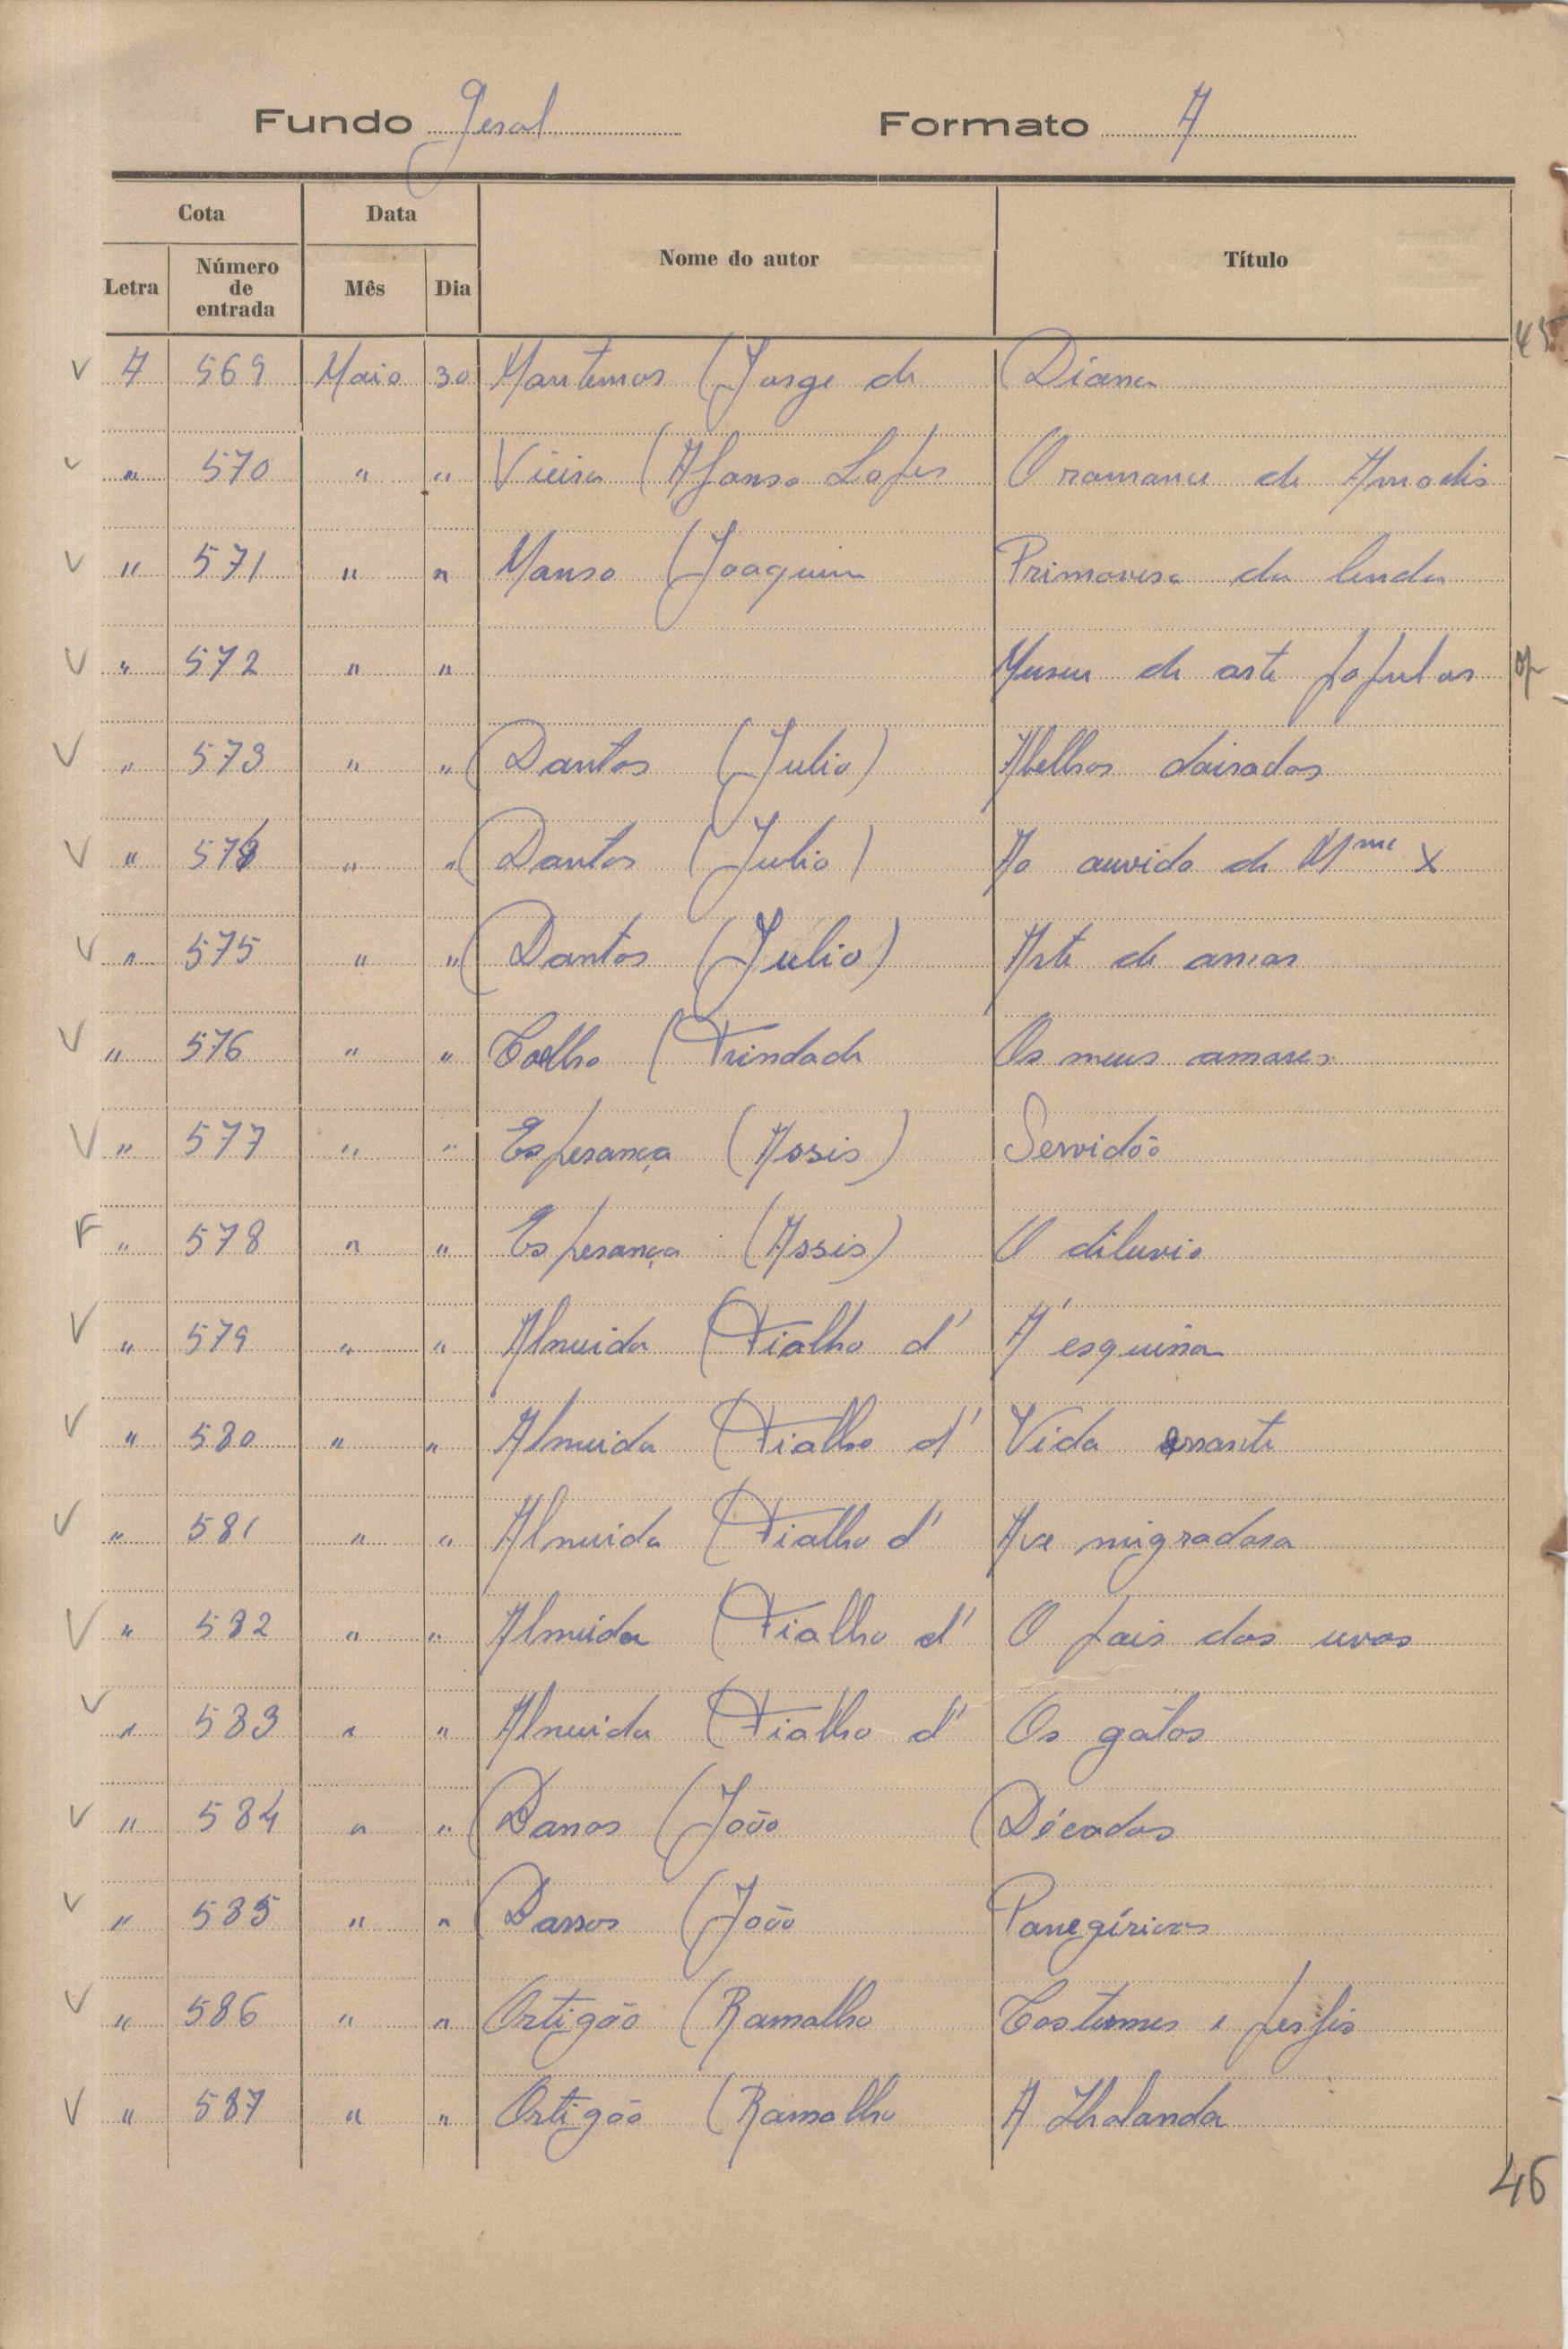 Fundo Geral Formato A
Cota Data Nome do autor Título
Letra Número de entrada Mês Dia
45
V A 569 Maio 30 Montemor (Jorge de Diana
V " 570 " " Vieira (Afonso Lopes O romance de Amadis
V " 571 " " Manso (Joaquim Primavera da lenda
V " 572 " " Museu de arte popular op
V " 573 " " Dantas (Julio) Abelhas doiradas
V " 574 " " Dantas (Julio) Ao ouvido de Mme X
V " 575 " " Dantas (Júlio) Arte de amar
V " 576 " " Coelho (Trindade Os meus amores
V " 577 " " Esperança (Assis) Servidão
F " 578 " " Esperança (Assis) O diluvio
V " 579 " " Almeida (Fialho d' Á esquina
V " 580 " " Almeida (Fialho d' Vida errante
V " 581 " " Almeida (Fialho d' Ave migradora
V " 582 " " Almeida (Fialho d' O pais das uvas
V " 583 " " Almeida (Fialho d' Os gátos
V " 584 " " Barros (João Décadas
V " 585 " " Barros (João Panegíricos
V " 586 " " Ortigão (Ramalho Costumes e perfis
V " 587 " " Ortigão (Ramalho A Holanda
46